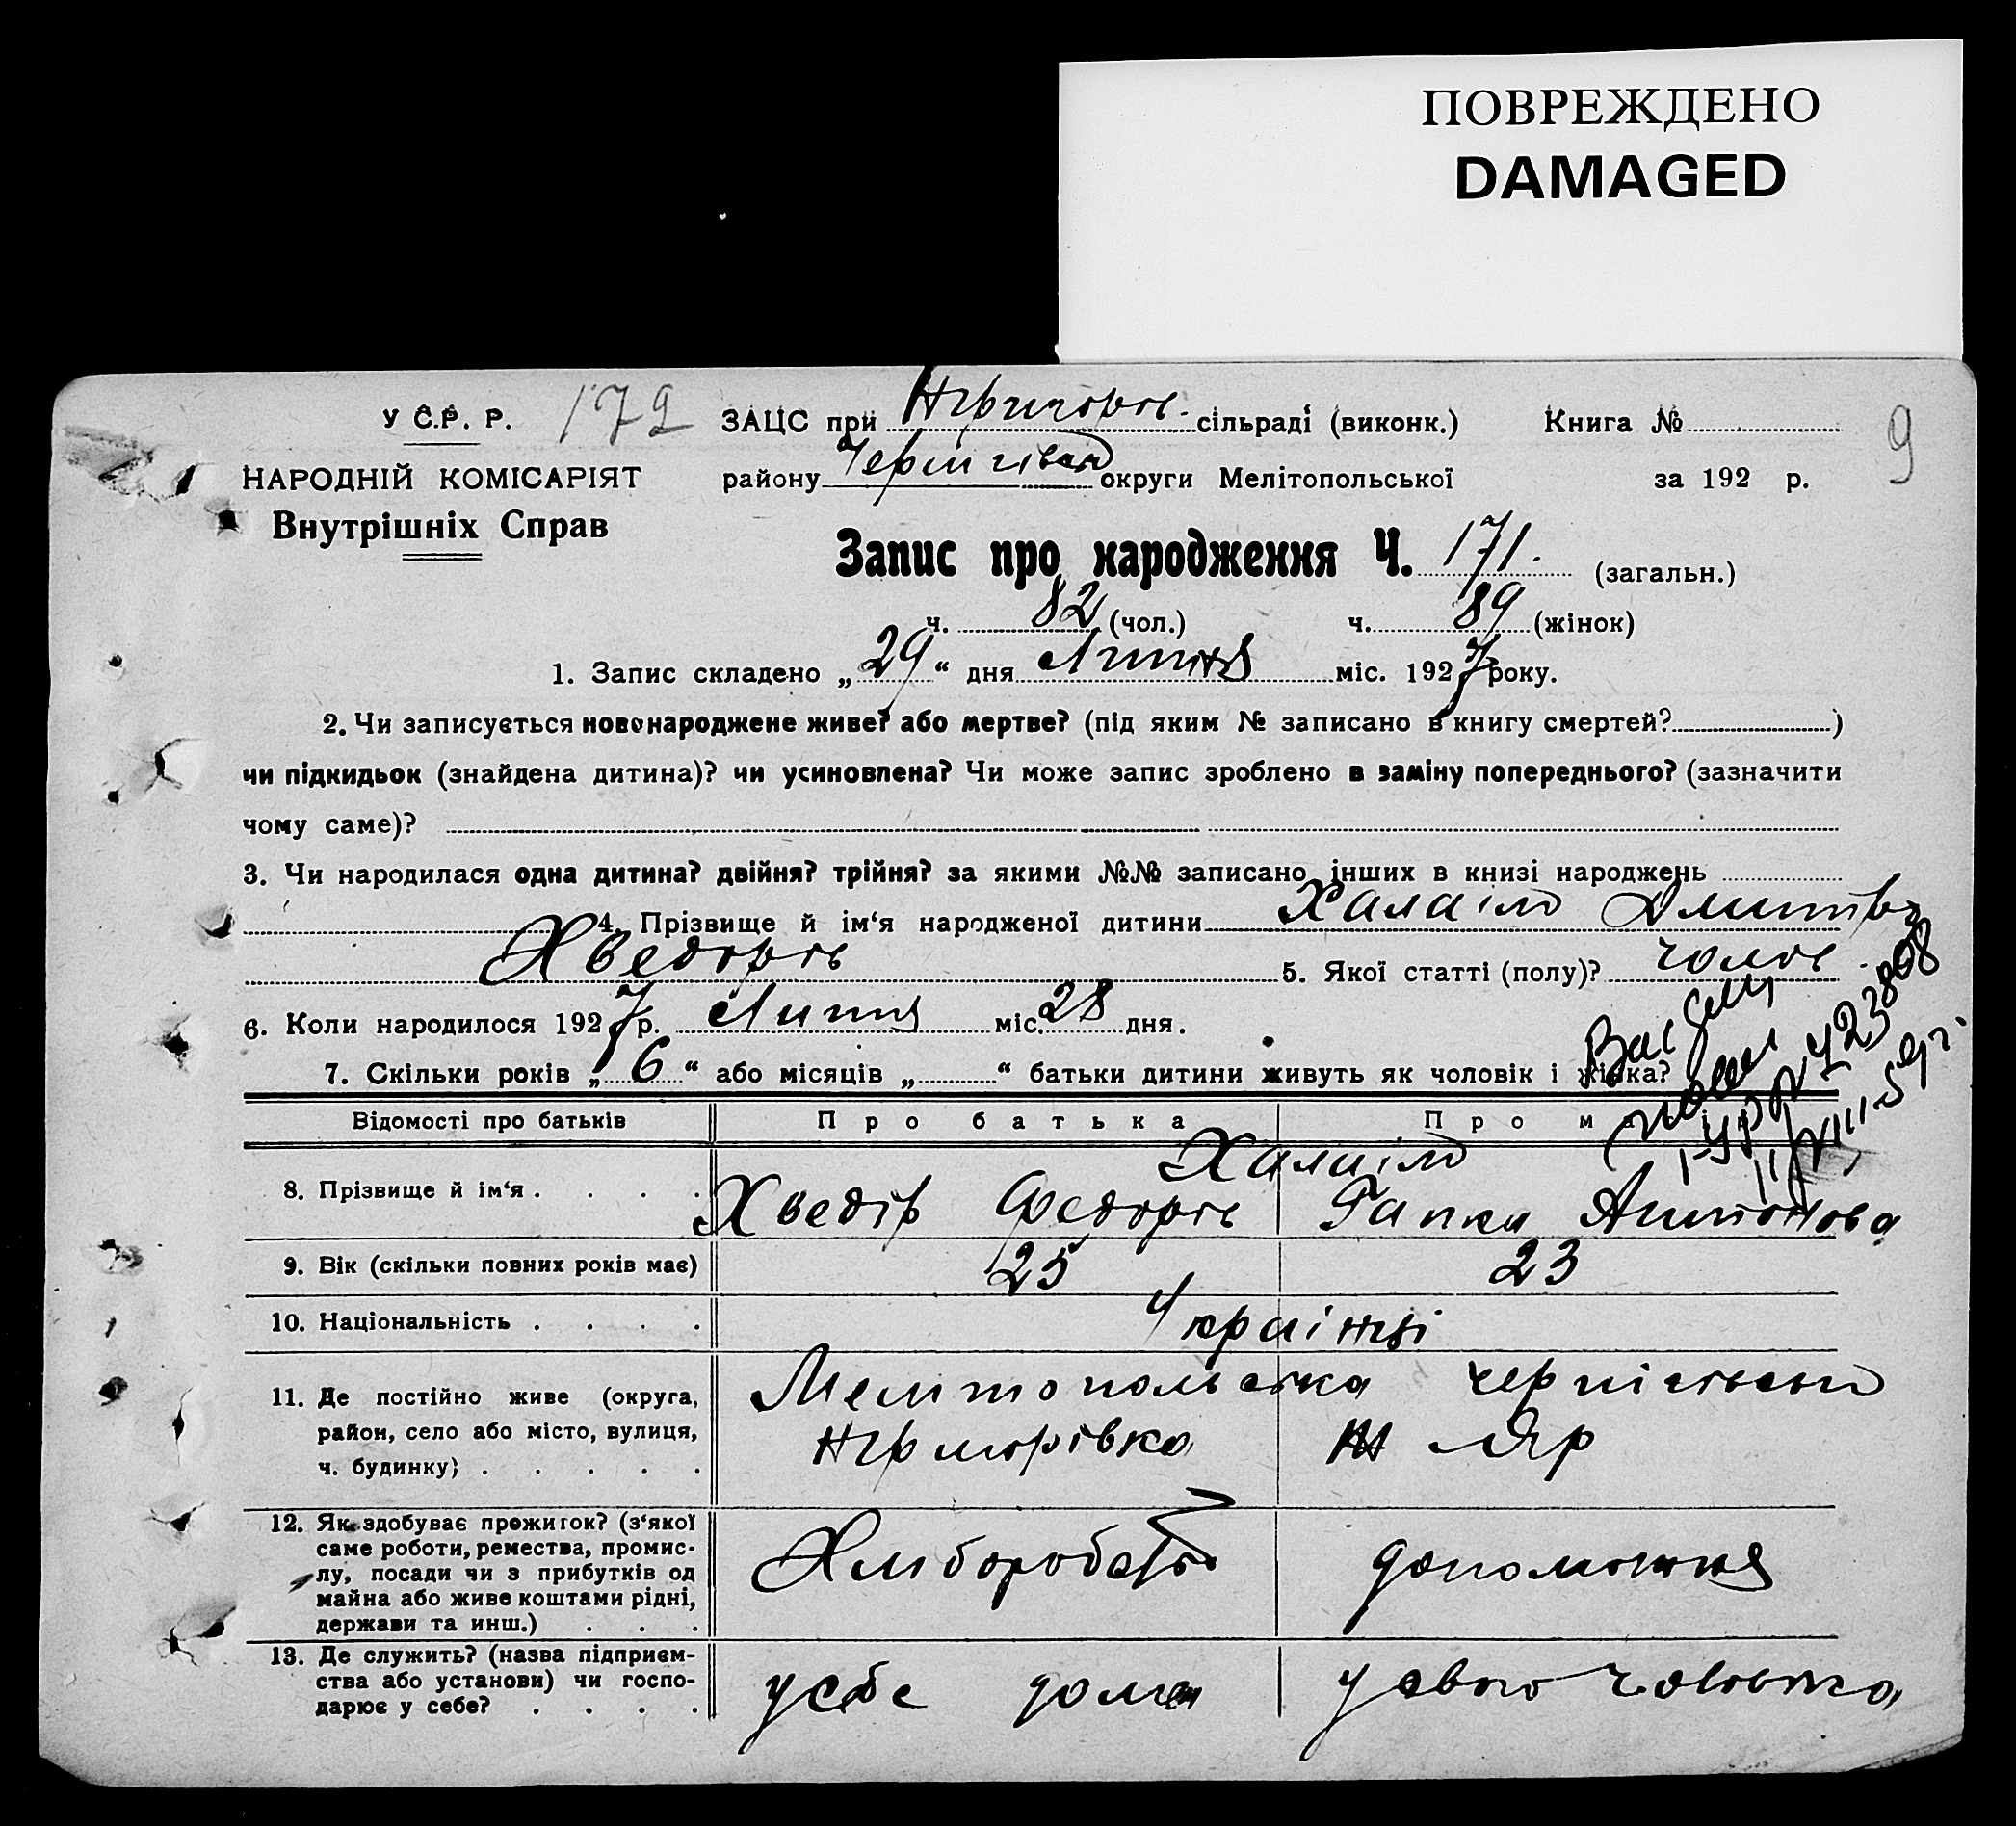 ПОВРЕЖДЕНО
DAMAGED
У С.Р. Р. 172 ЗАЦС при сільраді (виконк.) Книга № 9
НАРОДНІЙ КОМІСАРІЯТ району округи Мелітопольської за 192 р.
Внутрішніх Справ
Запис про народження Ч. 171. (загальн.)
ч. 82 (чол.) ч. 89 (жінок)
1. Запис складено „29“ дня Липня міс. 1927 року.
2. Чи записується новонароджене живе? або мертве? (під яким № записано в книгу смертей? )
чи підкидьок (знайдена дитина)? чи усиновлена? Чи може запис зроблено в заміну попереднього? (зазначити
чому саме)?
3. Чи народилася одна дитина? двійня? трійня? за якими №№ записано інших в книзі народжень
4. Прізвище й ім‘я народженої дитини Халаїм Дмитро
Хведоров 5. Якої статті (полу)? чолов
6. Коли народилося 1927 р. Липня міс. 28 дня.
7. Скільки років „6“ або місяців „ “ батьки дитини живуть як чоловік і жінка?
Відомості про батьків Про батька Про
Халаїм
8. Прізвище й ім‘я . . . . Хведір Федоров Гапка Антонова
9. Вік (скільки повних років має) 25 23
10. Національність . . . . Українці
11. Де постійно живе (округа, Мелітопольська
район, село або місто, вулиця, Яр
ч. будинку) . . . . .
12. Як здобуває прожиток? (з‘якої
саме роботи, ремества, промис-
лу, посади чи з прибутків од Хлиборобство
майна або живе коштами рідні,
держави та инш.) . . .
13. Де служить? (назва підприєм-
ства або установи) чи госпо- у себе дома у свого чоловіка
дарює у себе? . . . .